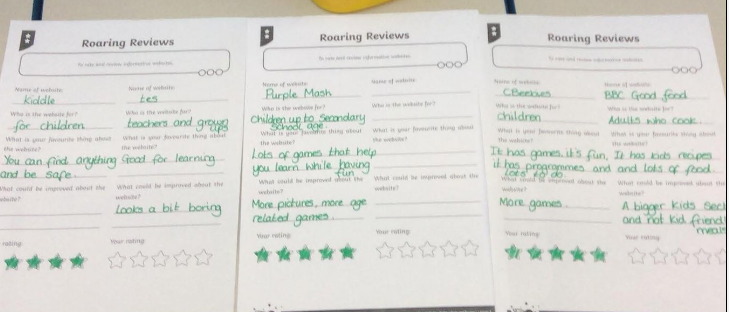 Roaring Reviews
To rate and review informative websites.
Name of website:
Name of website:
Kiddle
tes
Who is the website for?
Who is the website for?
for children
teachers and grown
ups
What is your favourite thing about
the website?
What is your favourite thing about
the website?
You can find anything
and be safe.
Good for learning
What could be improved about the
website?
What could be improved about the
website?
Looks a bit boring
rating:
Your rating:
Roaring Reviews
To rate and review informative websites.
Name of website:
Name of website:
Purple Mash
Who is the website for?
Who is the website for?
Children up to Secondary
School age
What is your favourite thing about
the website?
What is your favourite thing about
the website?
Lots of games that help
you learn while having
fun
What could be improved about the
website?
What could be improved about the
website?
More pictures, more age
related games.
Your rating:
Your rating:
Roaring Reviews
To rate and review informative websites.
Name of website:
Name of website:
CBeebies
BBC Good food
Who is the website for?
Who is the website for?
children
Adults who cook.
What is your favourite thing about
the website?
What is your favourite thing about
the website?
It has games, it's fun,
it has programmes and
lots to do
It has kids recipes
and lots of food.
What could be improved about the
website?
What could be improved about the
website?
More games.
A bigger kids sec
and not kid friendl
meals
Your rating:
Your rating: